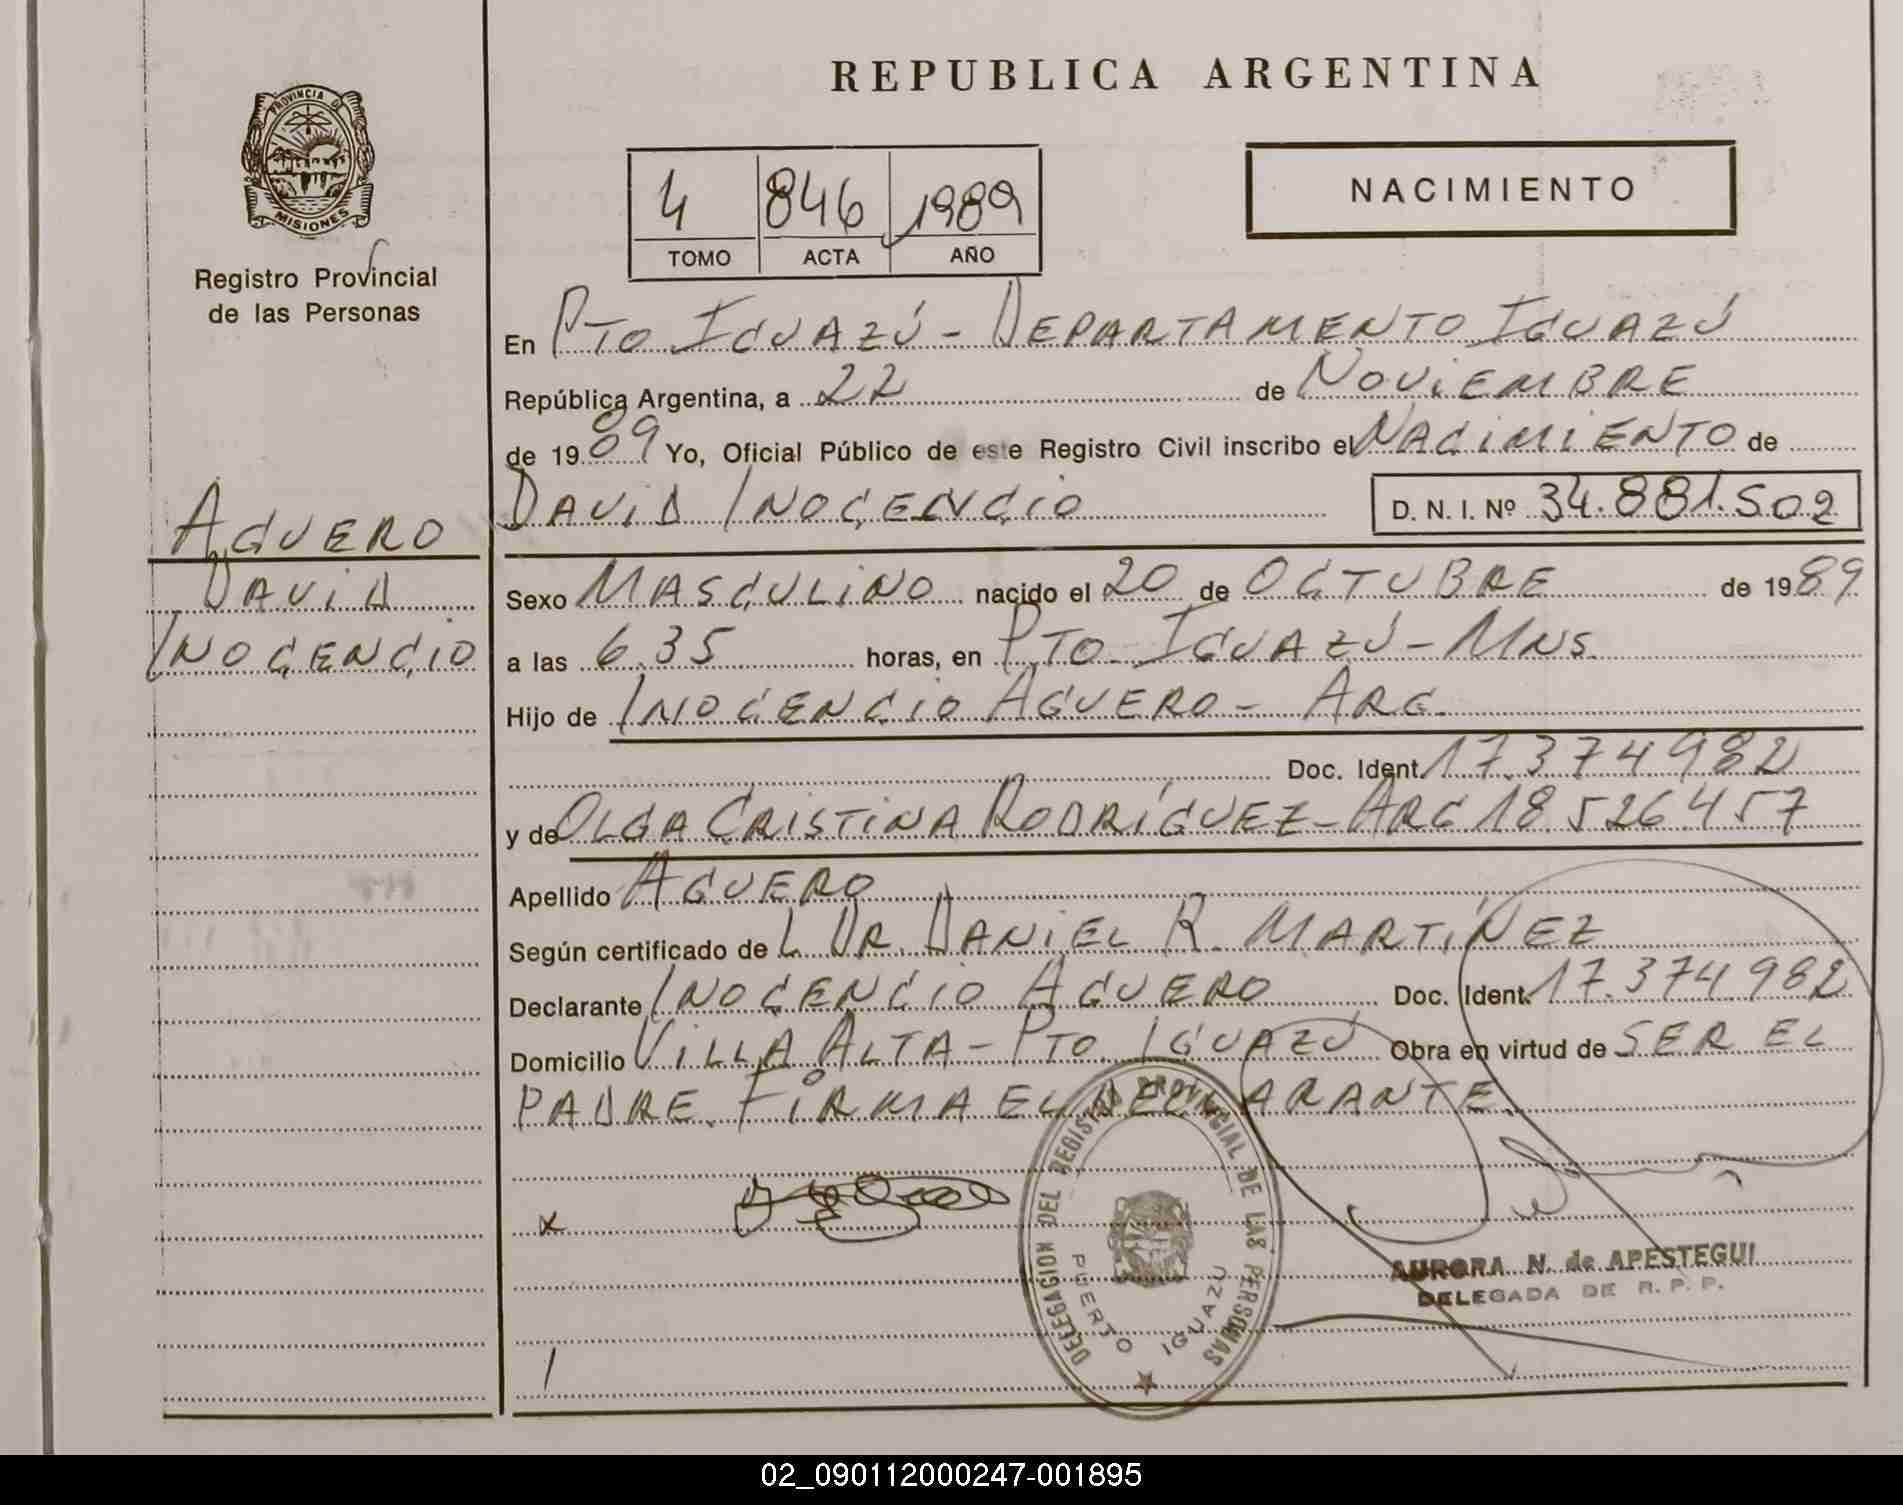 PROVINCIA DE
MISIONES
Registro Provincial
de las Personas
AGUERO
DAVID
INOCENCIO
REPUBLICA ARGENTINA
4 846 1989
TOMO ACTA AÑO
NACIMIENTO
En PTO IGUAZÚ - DEPARTAMENTO IGUAZÚ
República Argentina, a 22 de NOVIEMBRE
de 1989 Yo, Oficial Público de este Registro Civil inscribo el NACIMIENTO de
DAVID INOCENCIO D. N. I. Nº 34.881.502
Sexo MASCULINO nacido el 20 de OCTUBRE de 1989
a las 6.35 horas, en PTO IGUAZÚ - MNS.
Hijo de INOCENCIO AGUERO - ARG.
Doc. Ident. 17.374982
y de OLGA CRISTINA RODRÍGUEZ - ARG 18.526457
Apellido AGUERO
Según certificado de L DR. DANIEL R. MARTÍNEZ
Declarante INOCENCIO AGUERO Doc. Ident. 17.374982
Domicilio VILLA ALTA - PTO IGUAZÚ Obra en virtud de SER EL
PADRE. FIRMA EL DECLARANTE.
x
DELEGACION DEL REGISTRO PROVINCIAL DE LAS PERSONAS
PUERTO IGUAZU
AURORA N. de APESTEGUI
DELEGADA DE R. P. P.
02_090112000247-001895